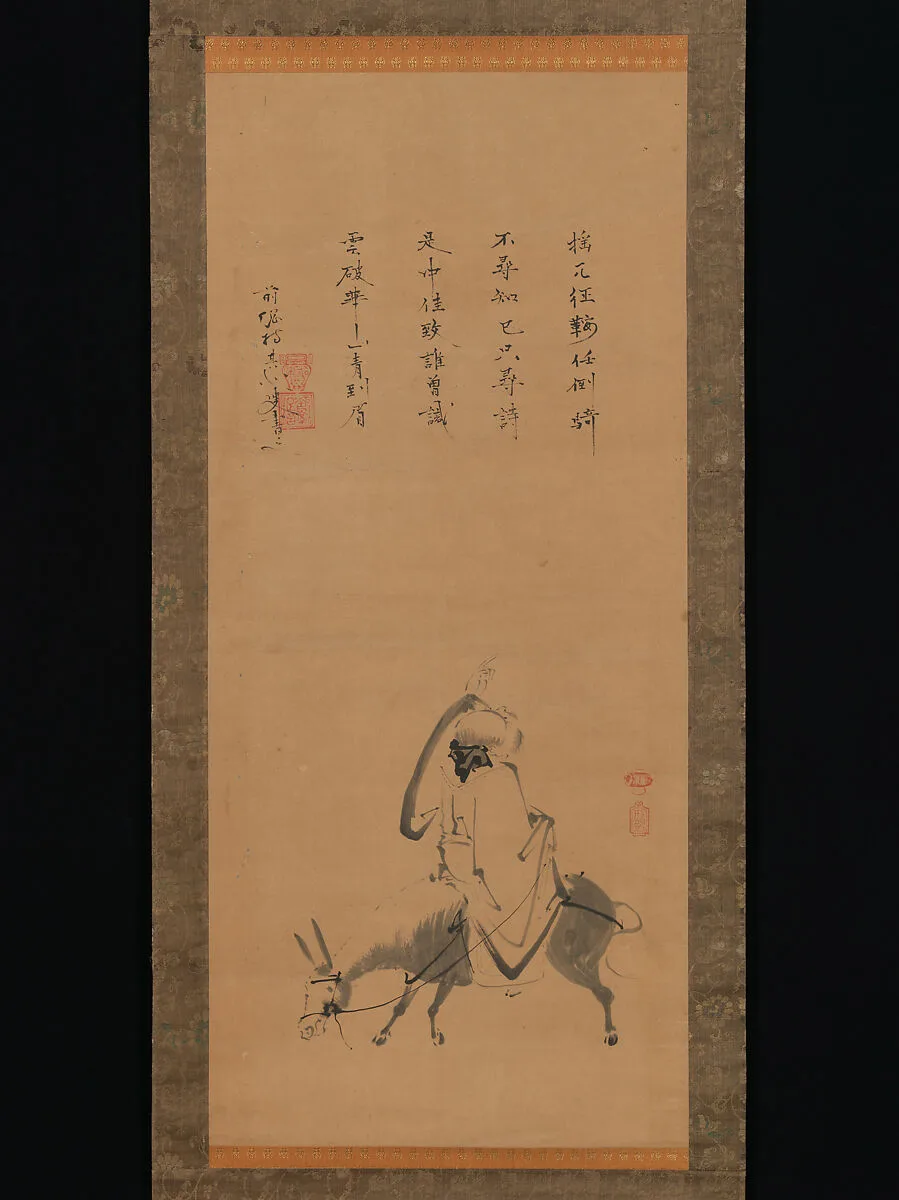 搖兀征鞍任倒騎
不尋知己只尋詩
是中佳致誰曾識
雲破華山青到眉
前總持書之